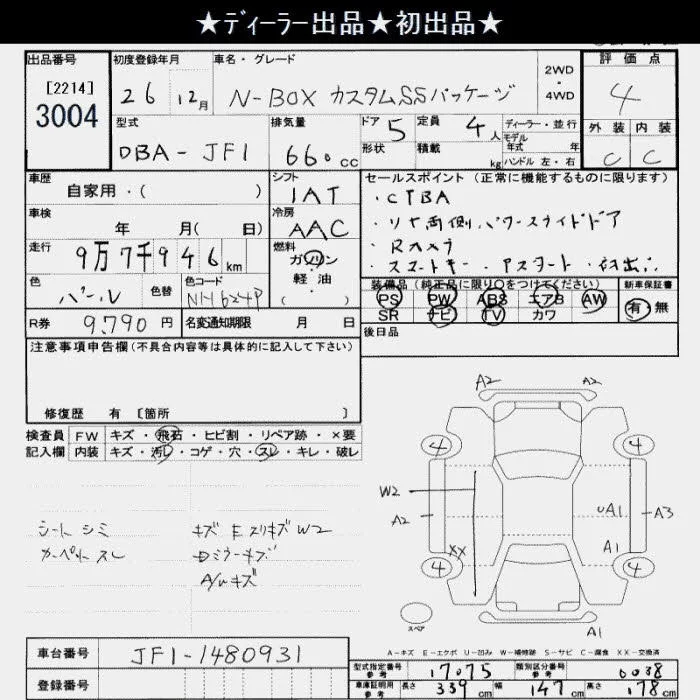 ★ディーラー出品★初出品★
出品番号 初度登録年月 車名・グレード 2WD・4WD 評価点
[2214]
3004
26 12月 N-BOX カスタムSSパッケージ 4
型式 排気量 ドア 5 定員 4人 ディーラー・並行 外装 内装
モデル
年式 年
DBA-JF1 660cc 形状 積載 kg ハンドル 左・右 C C
車歴 シフト セールスポイント (正常に機能するものに限ります)
自家用・( ) IAT ・CTBA
車検 冷房 ・リヤ両側パワースライドドア
年 月(日) AAC ・Rカメラ
走行 9万7千946km 燃料 ガソリン ・スマートキー・アスタート・初出品
軽油
( )
色 パール 色替 色コード NH624P 装備品(純正品に限り○をつけてください) 新車保証書
PS PW ABS エアB AW 有・無
SR ナビ TV カワ
R券 9,790円 名変通知期限 月 日 後日品
注意事項申告欄(不具合内容等は具体的に記入して下さい)
修復歴 有 [箇所 ]
検査員 FW キズ・飛石・ヒビ割・リペア跡・×要
記入欄 内装 キズ・汚レ・コゲ・穴・スレ・キレ・破レ
シート シミ キズ E スリキズ W2
カーペット スレ Dミラーキズ
A/wキズ
A2 A2
4 4
W2
A2 uA1 A3
XX A1
4 4
スペア A1
A-キズ E-エクボ U-凹み W-補修跡 S-サビ C-腐食 XX-交換済
車台番号 JF1-1480931 型式指定番号 参考 17075 類別区分番号 参考 0038
登録番号 車庫証明用 参考 長さ 339cm 幅 147cm 高さ 178cm